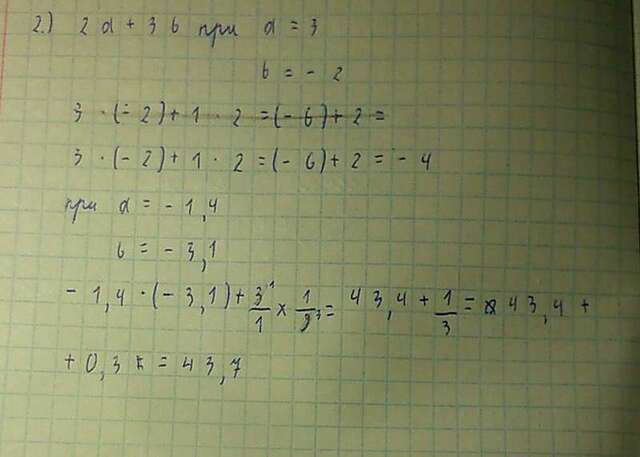 2.) 2 a + 3 b при a = 3
b = - 2
3 · (- 2) + 1 · 2 = (- 6) + 2 =
3 · (- 2) + 1 · 2 = (- 6) + 2 = - 4
при a = - 1,4
b = - 3,1
- 1,4 · (- 3,1) + 3/1 x 1/9 = 43,4 + 1/3 = 43,4 +
+ 0,3 = 43,7